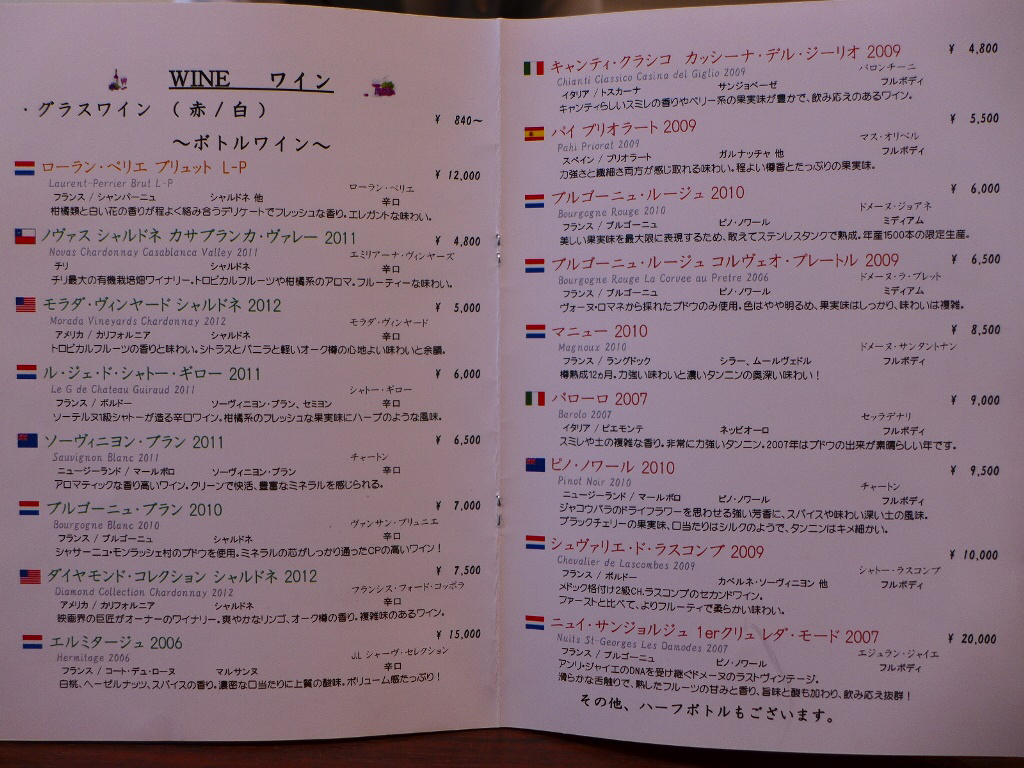 WINE ワイン
・グラスワイン （赤／白） ¥ 840～
～ボトルワイン～
ローラン・ペリエ ブリュット L-P ¥ 12,000
Laurent-Perrier Brut L-P ローラン・ペリエ
フランス / シャンパーニュ シャルドネ 他 辛口
柑橘類と白い花の香りが程よく絡み合うデリケートでフレッシュな香り。エレガントな味わい。
ノヴァス シャルドネ カサブランカ・ヴァレー 2011 ¥ 4,800
Novas Chardonnay Casablanca Valley 2011 エミリアーナ・ヴィンヤーズ
チリ シャルドネ 辛口
チリ最大の有機栽培畑ワイナリー。トロピカルフルーツや柑橘系のアロマ。フルーティーな味わい。
モラダ・ヴィンヤード シャルドネ 2012 ¥ 5,000
Morada Vineyards Chardonnay 2012 モラダ・ヴィンヤード
アメリカ / カリフォルニア シャルドネ 辛口
トロピカルフルーツの香りと味わい。シトラスとバニラと軽いオーク樽の心地よい味わいと余韻。
ル・ジェ・ド・シャトー・ギロー 2011 ¥ 6,000
Le G de Chateau Guiraud 2011 シャトー・ギロー
フランス / ボルドー ソーヴィニヨン・ブラン、セミヨン 辛口
ソーテルヌ1級シャトーが造る辛口ワイン。柑橘系のフレッシュな果実味にハーブのような風味。
ソーヴィニヨン・ブラン 2011 ¥ 6,500
Sauvignon Blanc 2011 チャートン
ニュージーランド / マールボロ ソーヴィニヨン・ブラン 辛口
アロマティックな香り高いワイン。クリーンで快活、豊富なミネラルを感じられる。
ブルゴーニュ・ブラン 2010 ¥ 7,000
Bourgogne Blanc 2010 ヴァンサン・ブリュニエ
フランス / ブルゴーニュ シャルドネ 辛口
シャサーニュ・モンラッシェ村のブドウを使用。ミネラルの芯がしっかり通ったCPの高いワイン！
ダイヤモンド・コレクション シャルドネ 2012 ¥ 7,500
Diamond Collection Chardonnay 2012 フランシス・フォード・コッポラ
アメリカ / カリフォルニア シャルドネ 辛口
映画界の巨匠がオーナーのワイナリー。爽やかなリンゴ、オーク樽の香り。複雑味のあるワイン。
エルミタージュ 2006 ¥ 15,000
Hermitage 2006 J.L シャーヴ・セレクション
フランス / コート・デュ・ローヌ マルサンヌ 辛口
白桃、ヘーゼルナッツ、スパイスの香り。濃密な口当たりに上質の酸味。ボリューム感たっぷり！
キャンティ・クラシコ カッシーナ・デル・ジーリオ 2009 ¥ 4,800
Chianti Classico Casina del Giglio 2009 バロンチーニ
イタリア / トスカーナ サンジョベーゼ フルボディ
キャンティらしいスミレの香りやベリー系の果実味が豊かで、飲み応えのあるワイン。
パイ プリオラート 2009 ¥ 5,500
Pahi Priorat 2009 マス・オリベル
スペイン / プリオラート ガルナッチャ 他 フルボディ
力強さと繊細さ両方が感じ取れる味わい。程よい樽香とたっぷりの果実味。
ブルゴーニュ・ルージュ 2010 ¥ 6,000
Bourgogne Rouge 2010 ドメーヌ・ジョアネ
フランス / ブルゴーニュ ピノ・ノワール ミディアム
美しい果実味を最大限に表現するため、敢えてステンレスタンクで熟成。年産1500本の限定生産。
ブルゴーニュ・ルージュ コルヴェオ・プレートル 2009 ¥ 6,500
Bourgogne Rouge La Corvee au Pretre 2006 ドメーヌ・ラ・プレット
フランス / ブルゴーニュ ピノ・ノワール ミディアム
ヴォーヌ・ロマネから採れたブドウのみ使用。色はやや明るめ、果実味はしっかり、味わいは複雑。
マニュー 2010 ¥ 8,500
Magnoux 2010 ドメーヌ・サンタントナン
フランス / ラングドック シラー、ムールヴェドル フルボディ
樽熟成12ヵ月。力強い味わいと濃いタンニンの奥深い味わい！
バローロ 2007 ¥ 9,000
Barolo 2007 セッラデナリ
イタリア / ピエモンテ ネッビオーロ フルボディ
スミレや土の複雑な香り。非常に力強いタンニン。2007年はブドウの出来が素晴らしい年です。
ピノ・ノワール 2010 ¥ 9,500
Pinot Noir 2010 チャートン
ニュージーランド / マールボロ ピノ・ノワール フルボディ
ジャコウバラのドライフラワーを思わせる強い芳香に、スパイスや味わい深い土の風味。
ブラックチェリーの果実味、口当たりはシルクのようで、タンニンはキメ細かい。
シュヴァリエ・ド・ラスコンブ 2009 ¥ 10,000
Chevalier de Lascombes 2009 シャトー・ラスコンブ
フランス / ボルドー カベルネ・ソーヴィニヨン 他 フルボディ
メドック格付け2級CH.ラスコンブのセカンドワイン。
ファーストと比べて、よりフルーティで柔らかい味わい。
ニュイ・サンジョルジュ 1erクリュ レダ・モード 2007 ¥ 20,000
Nuits St-Georges Les Damodes 2007 エジュラン・ジャイエ
フランス / ブルゴーニュ ピノ・ノワール フルボディ
アンリ・ジャイエのDNAを受け継ぐドメーヌのラストヴィンテージ。
滑らかな舌触りで、熟したフルーツの甘みと香り、旨味と酸も加わり、飲み応え抜群！
その他、ハーフボトルもございます。